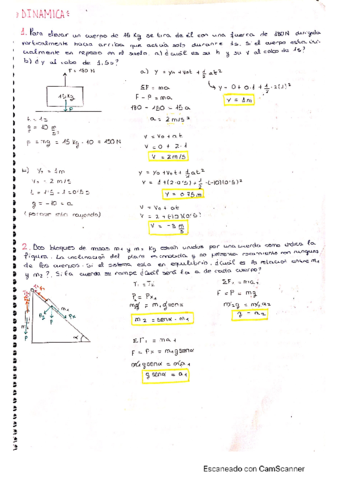 DINAMICA:
1. Para elevar un cuerpo de 15 Kg se tira de él con una fuerza de 180N dirigida
verticalmente hacia arriba que actúa solo durante 1s. Si el cuerpo estaba ini-
cialmente en reposo en el suelo. a) ¿cuál es su h y su v al cabo de 1s?
b) d y al cabo de 1.5s?
F = 180 N
15kg
t = 1s
g = 10 m/s²
P = mg = 15 kg · 10 = 150 N
a) y = y₀ + v₀t + ½at²
ΣF = ma
F - P = ma
180 - 150 = 15 a
a = 2 m/s²
y = 0 + 0·1 + ½·2(1)²
y = 1m
v = v₀ + at
v = 0 + 2·1
v = 2m/s
b) y₀ = 1m
v₀ = 2 m/s
t = 1.5 - 1 = 0.5s
g = -10 = a
y = y₀ + v₀t + ½at²
y = 1 + (2·0.5) + ½·(-10)(0.5)²
y = 0.75m
v = v₀ + at
v = -3 m/s
2. Dos bloques de masas m₁ y m₂ Kg están unidos por una cuerda como indica la
figura. La inclinación del plano es α y no presenta rozamiento con ninguno
de los cuerpos. Si el sistema está en equilibrio. ¿cuál es la relación entre m₁
y m₂?. Si la cuerda se rompe ¿cuál será la a de cada cuerpo?
T₁ = T₂
P₂ = Px₁
m₂g = m₁ g senα
m₂ = senα · m₁
ΣF₁ = ma₁
F = Px = m₁g senα
m₁g senα = m₁a₁
g senα = a₁
F = P = m₂g
m₂g = m₂a₂
g = a₂
Escaneado con CamScanner